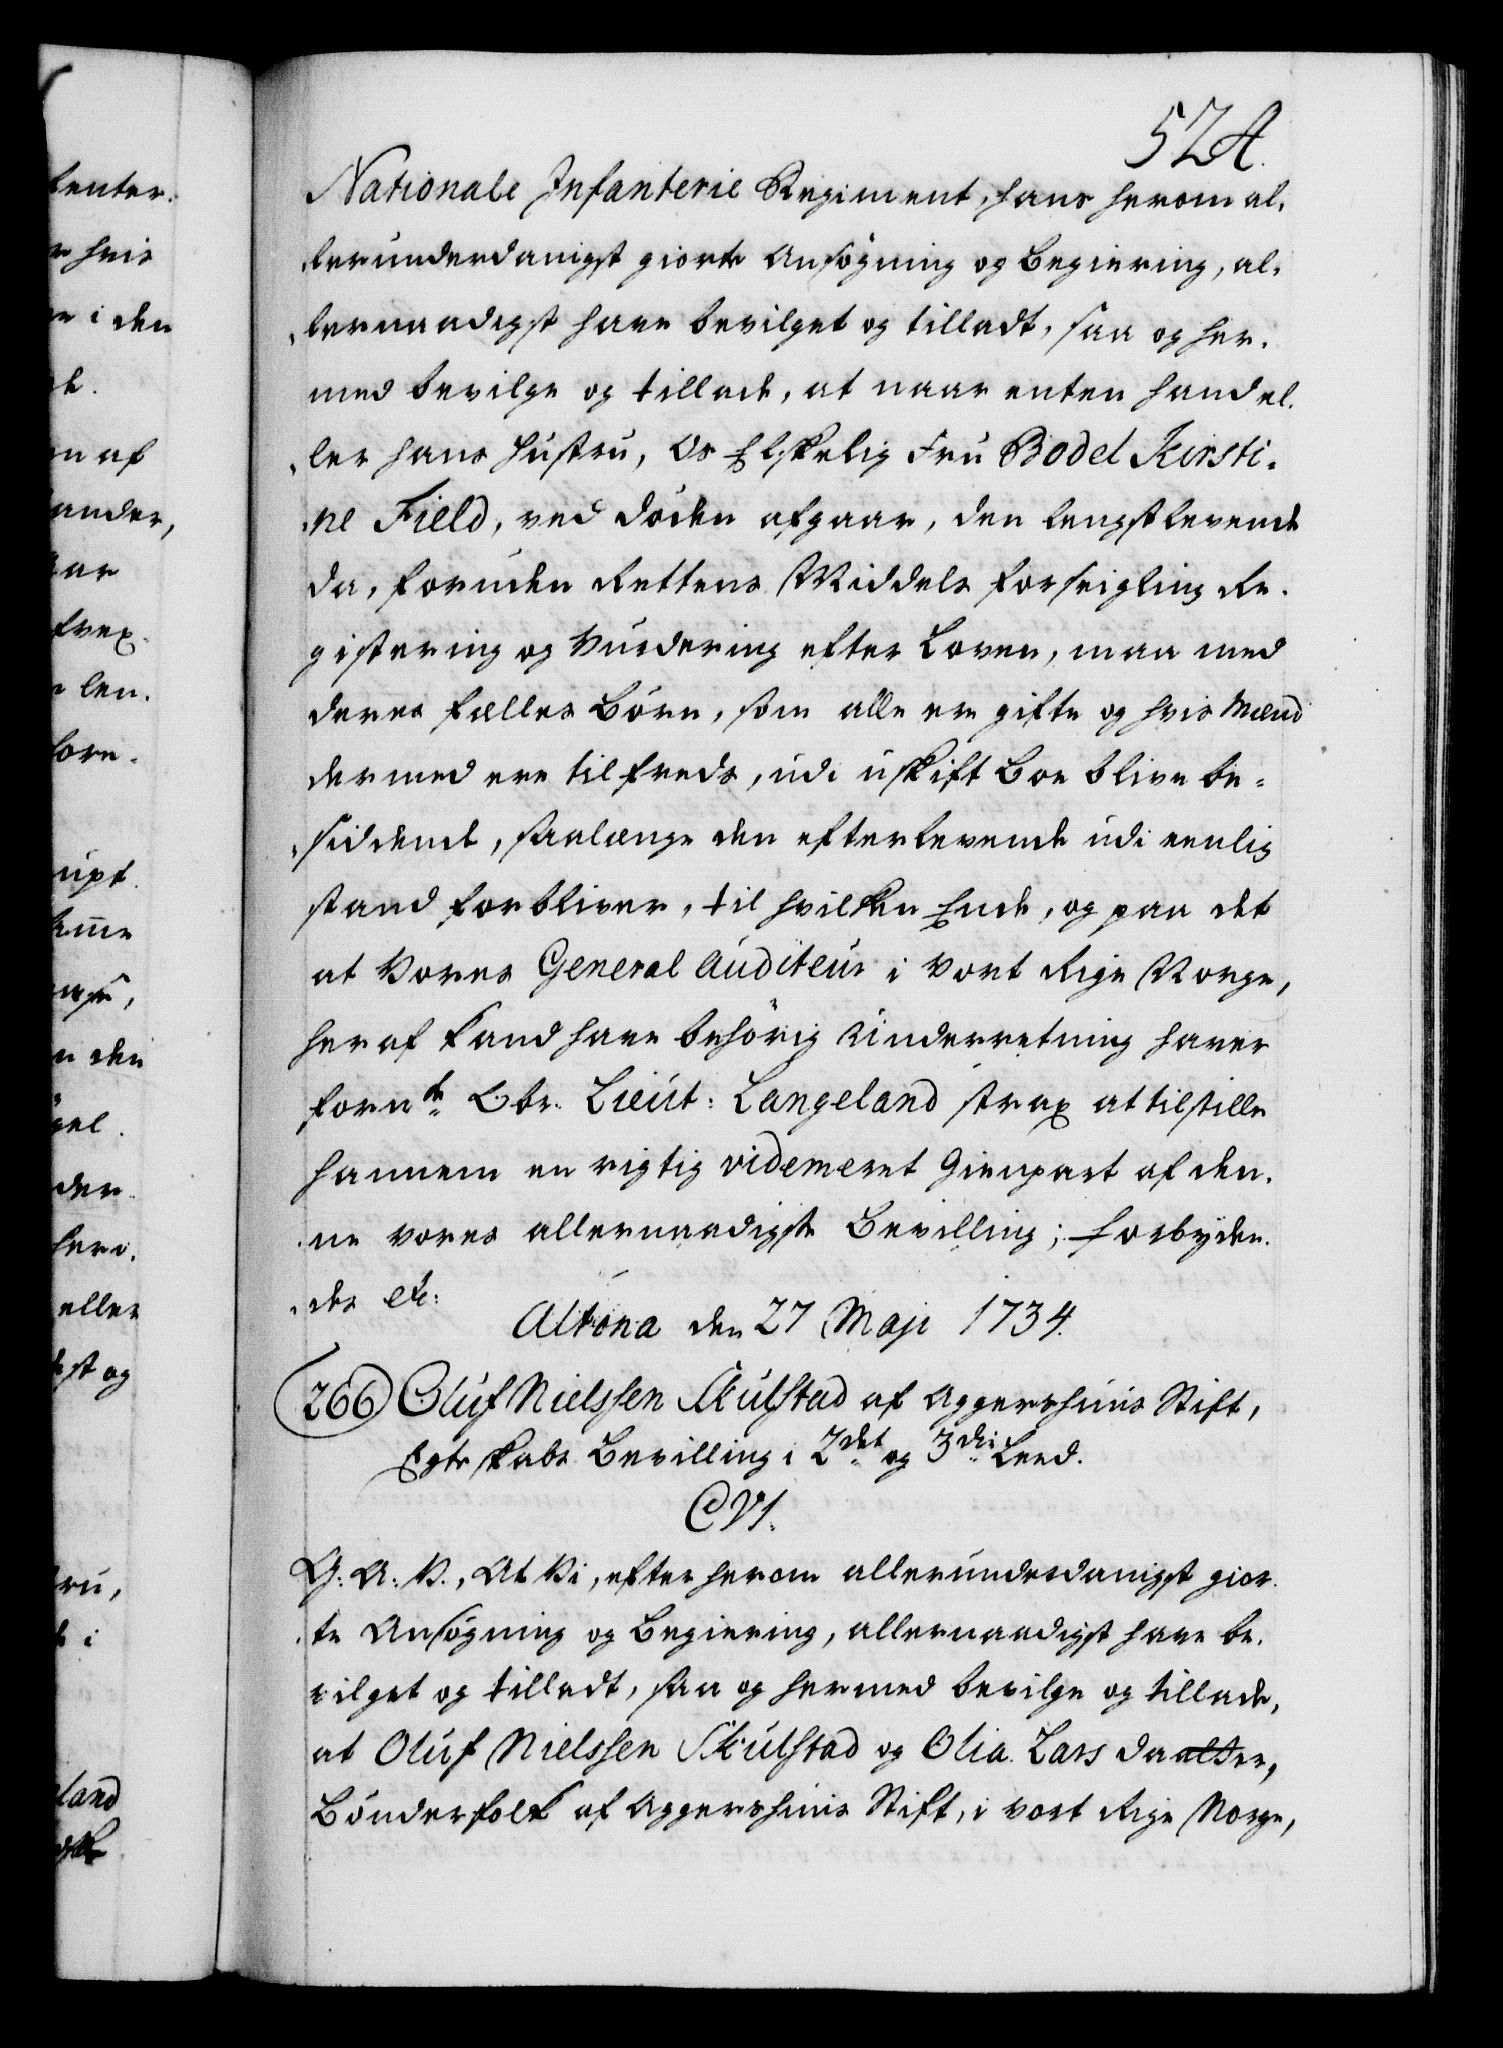 524.
Nationale Infanterie Regiment, hans herom al-
lerunderdanigst giorte Ansøgning og Begiering, al-
lernaadigst have bevilget og tilladt, saa og her-
med bevilge og tillade, at naar enten hand el-
ler hans Hustru, Os Elskelig Fru Bodel Kirsti-
ne Field, ved Døden afgaar, den lengstlevende
da, foruden Rettens Middels Forseigling Re-
gistering og Vurdering efter Loven, maa med
deres fælles Børn, som alle ere gifte og hvis Mænd
dermed ere tilfreds, udi uskift Boe blive be-
siddende, saalænge den efterlevende udi eenlig
stand forbliver, til hvilken Ende, og paa det
at Vores General Auditeur i Vort Rige Norge,
heraf kand have behørig Underretning haver
fornde Obr. Lieut: Langeland strax at tilstille
hannem en rigtig videmeret Gienpart af den-
ne vores allernaadigste Bevilling; Forbyden-
des etc:
Altona den 27 Maji 1734.
266 Oluf Nielssen Skulstad af Aggershuus Stift,
Egteskabs Bevilling i 2det og 3die Leed.
C VI.
G: A: V., At Vi, efter herom allerunderdanigst gior-
te Ansøgning og Begiering, allernaadigst have be-
vilget og tilladt, saa og hermed bevilge og tillade,
at Oluf Nielssen Skulstad og Olia Lars Daatter,
Bønderfolk af Aggershuus Stift, i vort Rige Norge,